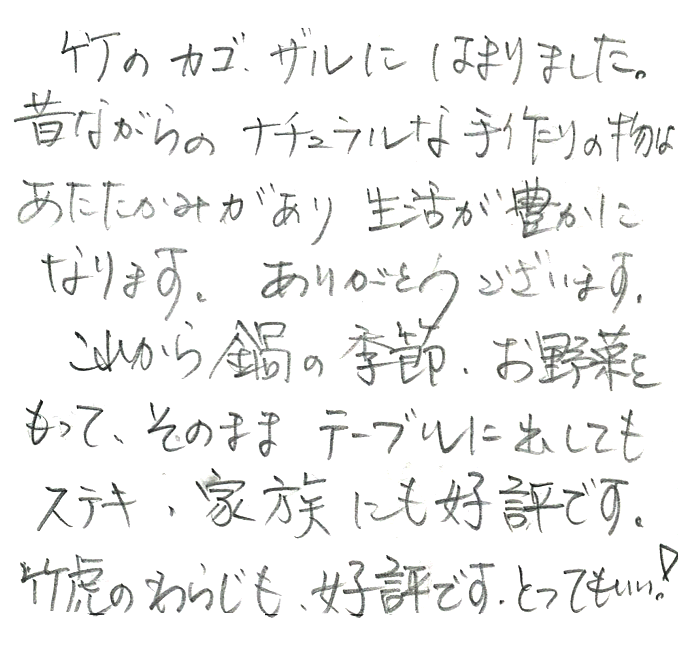 竹のカゴ、ザルにはまりました。
昔ながらのナチュラルな手作りの物は
あたたかみがあり生活が豊かに
なります。ありがとうございます。
これから鍋の季節、お野菜を
もって、そのままテーブルに出しても
ステキ、家族にも好評です。
竹虎のわらじも、好評です。とってもいい!